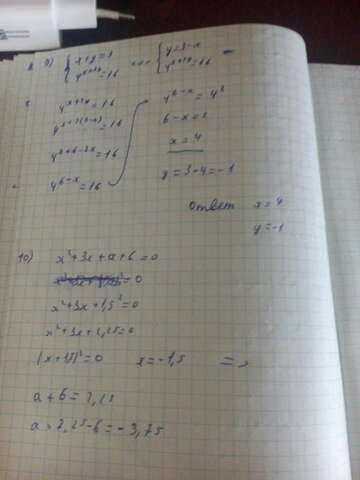 9) { x+y=3 { y=3-x
4^(x+2y)=16 4^(x+2y)=16
4^(x+2y)=16
4^(x+2(3-x))=16
4^(x+6-2x)=16
4^(6-x)=16
4^(6-x)=4^2
6-x=2
x=4
y=3+4=-1
Ответ x=4
y=-1
10) x²+3x+a+6=0
x²+3x+1,5²=0
x²+3x+2,25=0
(x+1,5)²=0 x=-1,5 =>
a+6=2,25
a=2,25-6=-3,75